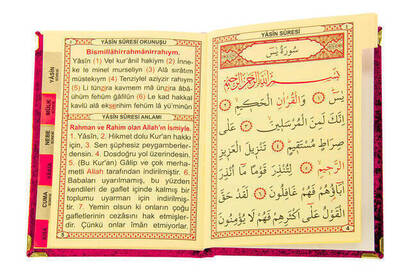 YÂSÎN SÛRESİ OKUNUŞU
Bismillâhirrahmânirrahıym.
Yâsîn (1) Vel kur'ânil hakiym (2) İnne-
ke le minel murseliyn (3) Alâ sırâtım
müstekıym (4) Tenziylel aziyzir rahıym
(5) Li tünzira kavmem mâ ünzira âbâ-
ühüm fehüm ğâfilûn (6) Le kad hakkal
kavlü alâ ekserihim fehüm lâ yü'minûn
YÂSÎN SÛRESİ ANLAMI
Rahman ve Rahim olan Allah'ın İsmiyle.
1. Yâsîn. 2. Hikmet dolu Kur'an hakkı
için, 3. Sen şüphesiz peygamberler-
densin. 4. Dosdoğru yol üzerindesin.
5. (Bu Kur'an) Gâlip ve çok merha-
metli Allah tarafından indirilmiştir. 6.
Babaları uyarılmamış, bu yüzden
kendileri de gaflet içinde kalmış bir
toplumu uyarman için indirilmiş-
tir. 7. Yemin olsun ki onların çoğu
gafletlerinin cezâsını hak etmişler-
dir. Çünkü onlar îman etmiyorlar.
YÂSÎN
MÜLK
NEBE
CUMA
YÂSÎN SÛRESİ
سُورَةُ يٰسٓ
بِسْمِ اللّٰهِ الرَّحْمٰنِ الرَّحِيمِ
يٰسٓ ﴿١﴾ وَالْقُرْاٰنِ الْحَكِيمِ ﴿٢﴾
اِنَّكَ لَمِنَ الْمُرْسَلِينَ ﴿٣﴾ عَلٰى
صِرَاطٍ مُسْتَقِيمٍ ﴿٤﴾ تَنْزِيلَ الْعَزِيزِ
الرَّحِيمِ ﴿٥﴾ لِتُنْذِرَ قَوْمًا مَٓا اُنْذِرَ
اٰبَٓاؤُهُمْ فَهُمْ غَافِلُونَ ﴿٦﴾ لَقَدْ حَقَّ
الْقَوْلُ عَلٰٓى اَكْثَرِهِمْ فَهُمْ لَا يُؤْمِنُونَ